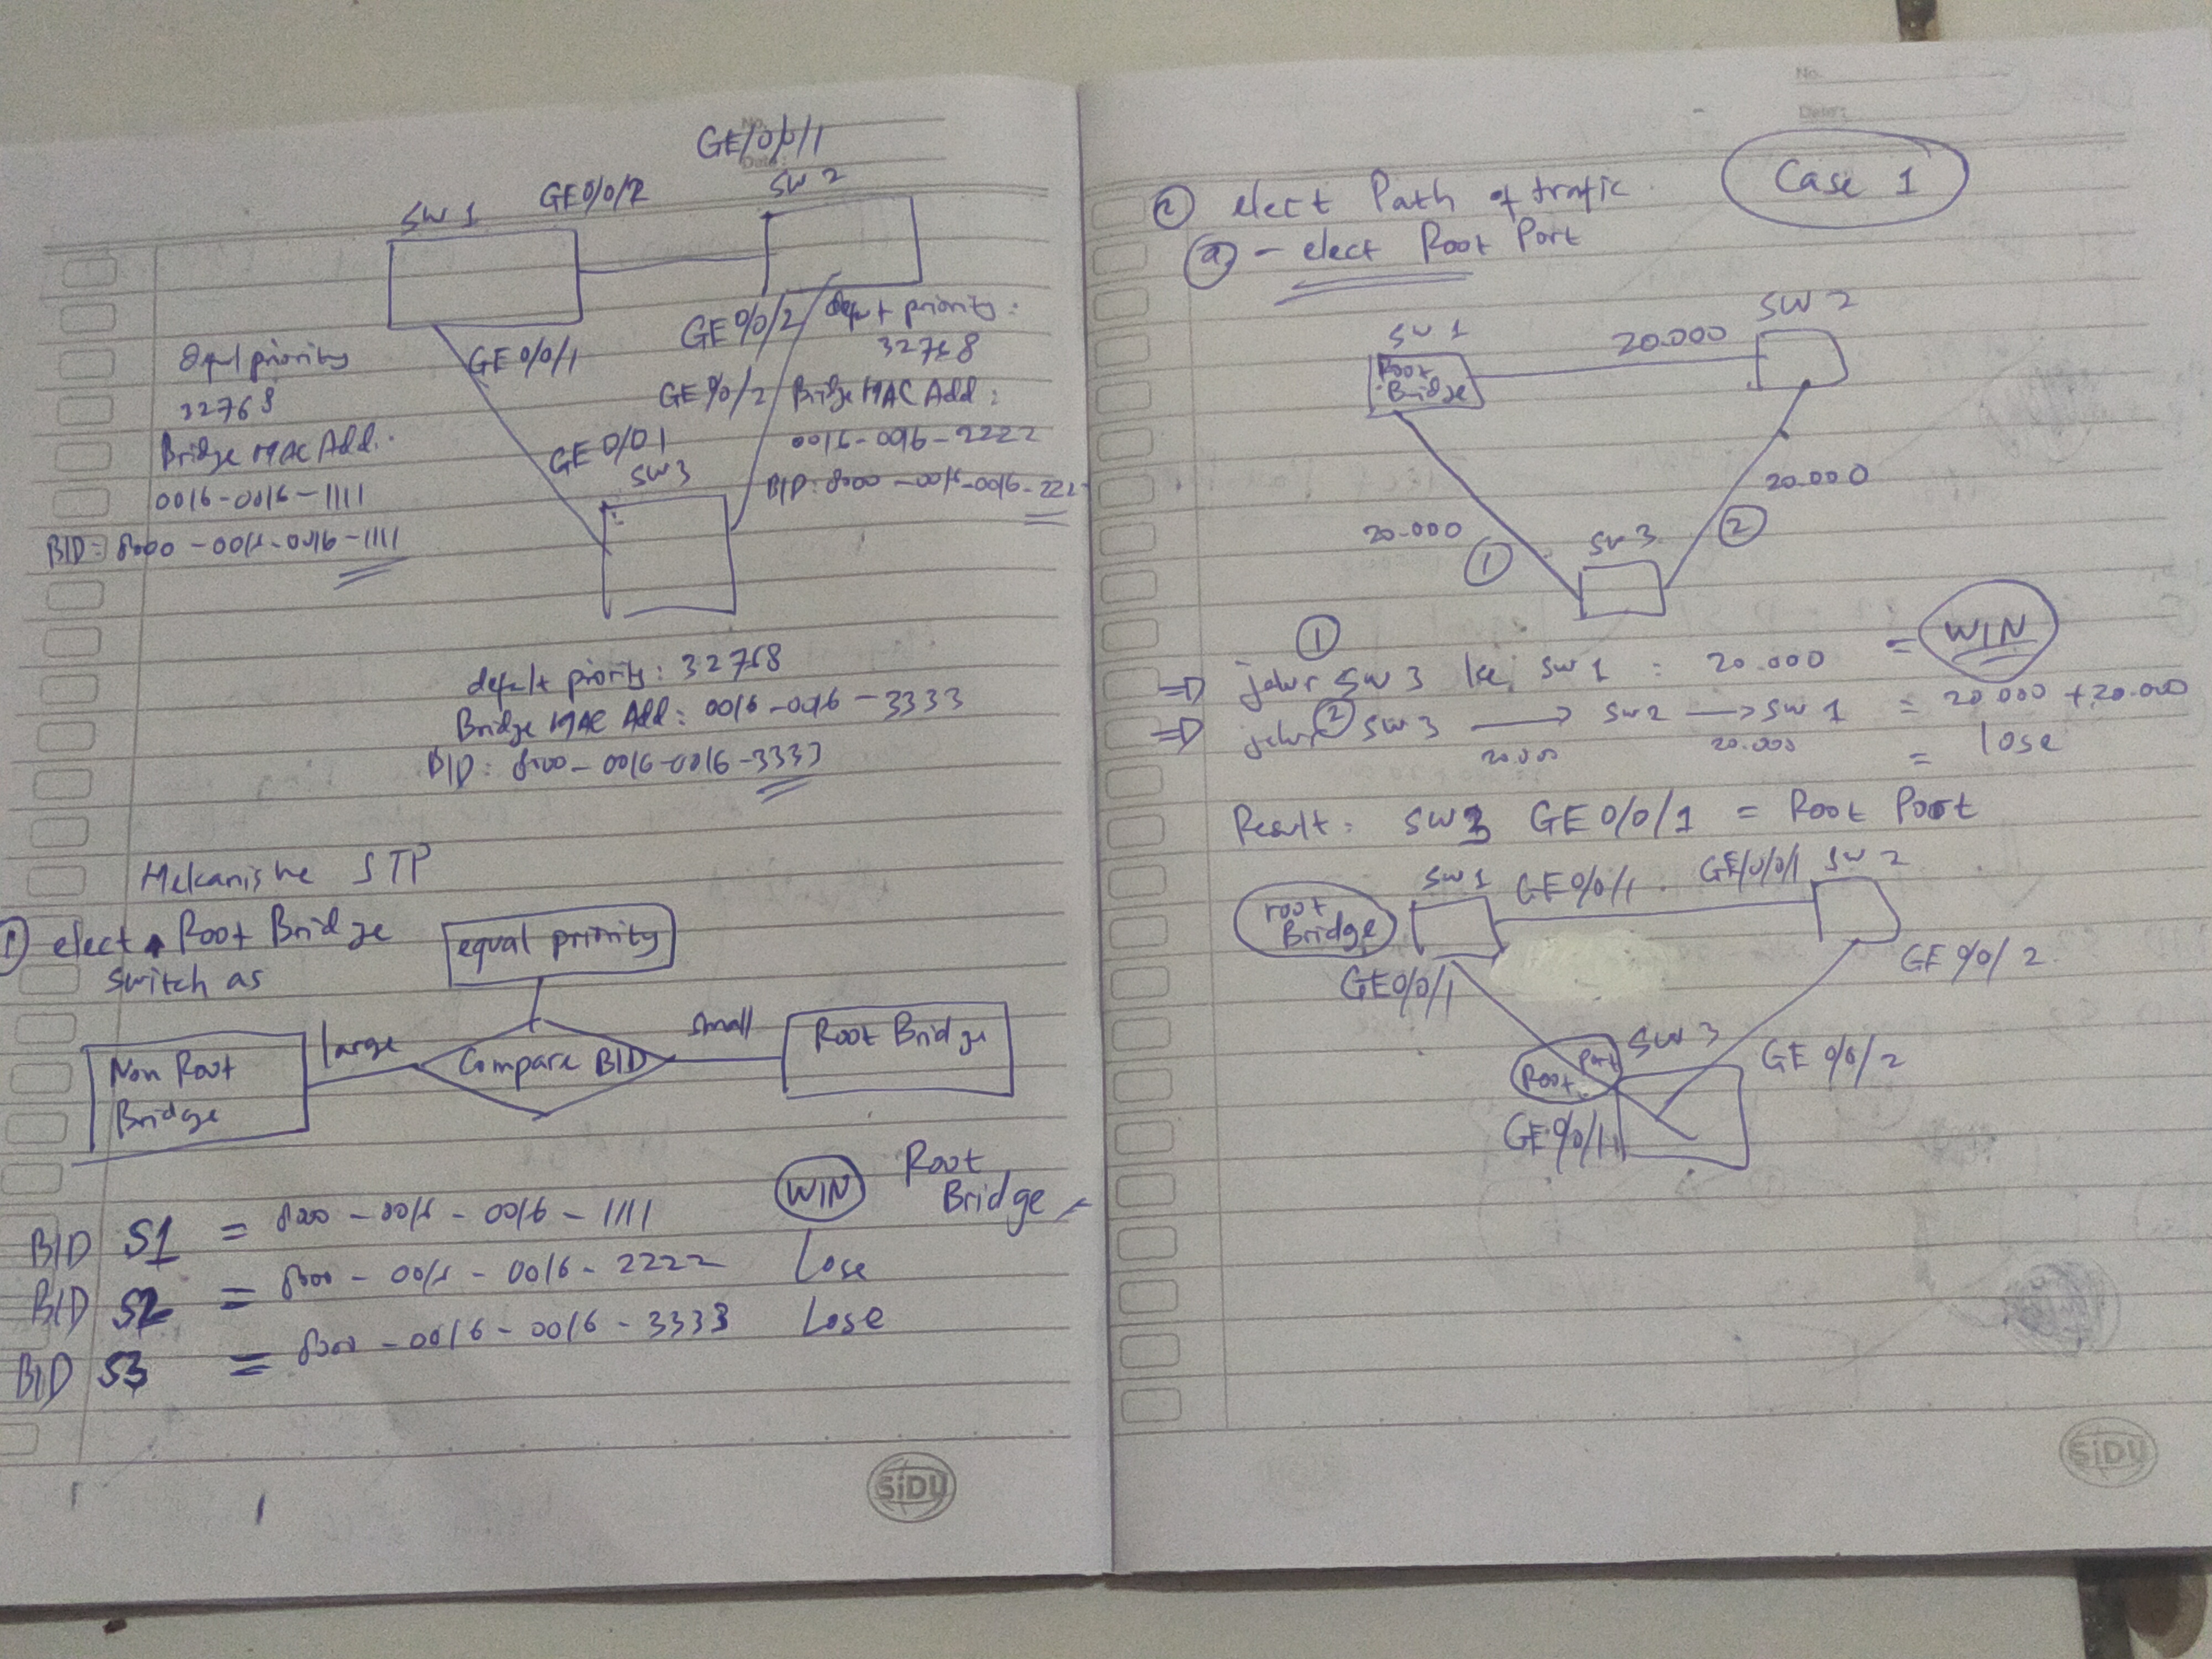 No.
Date:
GE/0/0/1
SW 1
GE0/0/2
SW 2
GE 0/0/1
GE 0/0/2
priority
32768
Bridge MAC Add.
0016-0016-1111
BID: 8000 - 0016-0016-1111
priority:
32768
GE 0/0/2
Bridge MAC Add:
0016-0016-2222
BID: 8000 - 0016-0016-222
GE 0/01
SW 3
default priority: 32768
Bridge MAC Add: 0016-0016-3333
BID: 8000-0016-0016-3333
STP
① elect Root Bridge
switch as
equal priority
Non Root
Bridge
large
Compare BID
small
Root Bridge
BID S1 = 8000 - 0016 - 0016 - 1111 WIN Root
Bridge
BID S2 = 8000 - 0016 - 0016 - 2222 Lose
BID S3 = 8000 - 0016 - 0016 - 3333 Lose
SiDU
No.
Date:
② elect Path of trafic
Case 1
ⓐ - elect Root Port
SW 1
Root
Bridge
20.000
SW 2
20.000
①
20.000
②
SW 3
①
⇒ jalur SW 3 ke SW 1 : 20.000 = WIN
⇒ jalur ② SW 3 → SW2 → SW 1 = 20.000 + 20.000
20.000 20.000
= lose
Result: SW3 GE 0/0/1 = Root Poot
root
Bridge
SW1
GE0/0/1
GE/0/0/1
SW 2
GE0/0/1
GE 0/0/2
Root Port
SW 3
GE 0/0/2
GE 0/0/1
SiDU